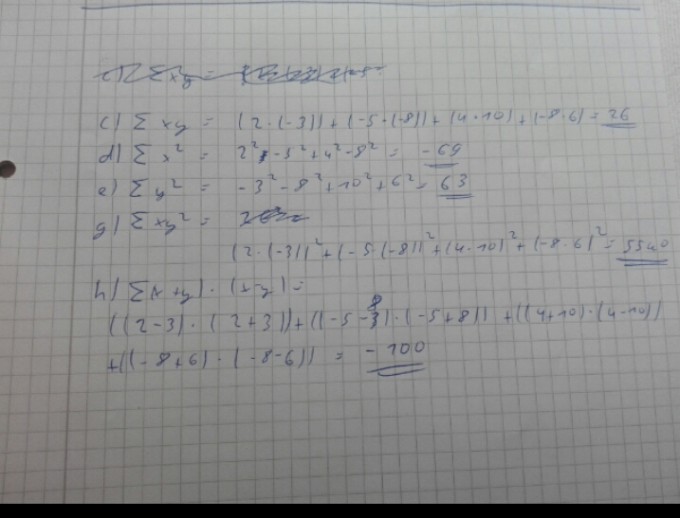 c) Σ xy = (2·(-3)) + (-5·(-8)) + (4·10) + (-8·6) = 26
d) Σ x² = 2² - 5² + 4² - 8² = -69
e) Σ y² = -3² - 8² + 10² + 6² = 63
g) Σ xy² =
(2·(-3))² + (-5·(-8))² + (4·10)² + (-8·6)² = 5540
h) Σ(x+y)·(x-y) =
((2-3)·(2+3)) + ((-5-8)·(-5+8)) + ((4+10)·(4-10))
+((-8+6)·(-8-6)) = -100